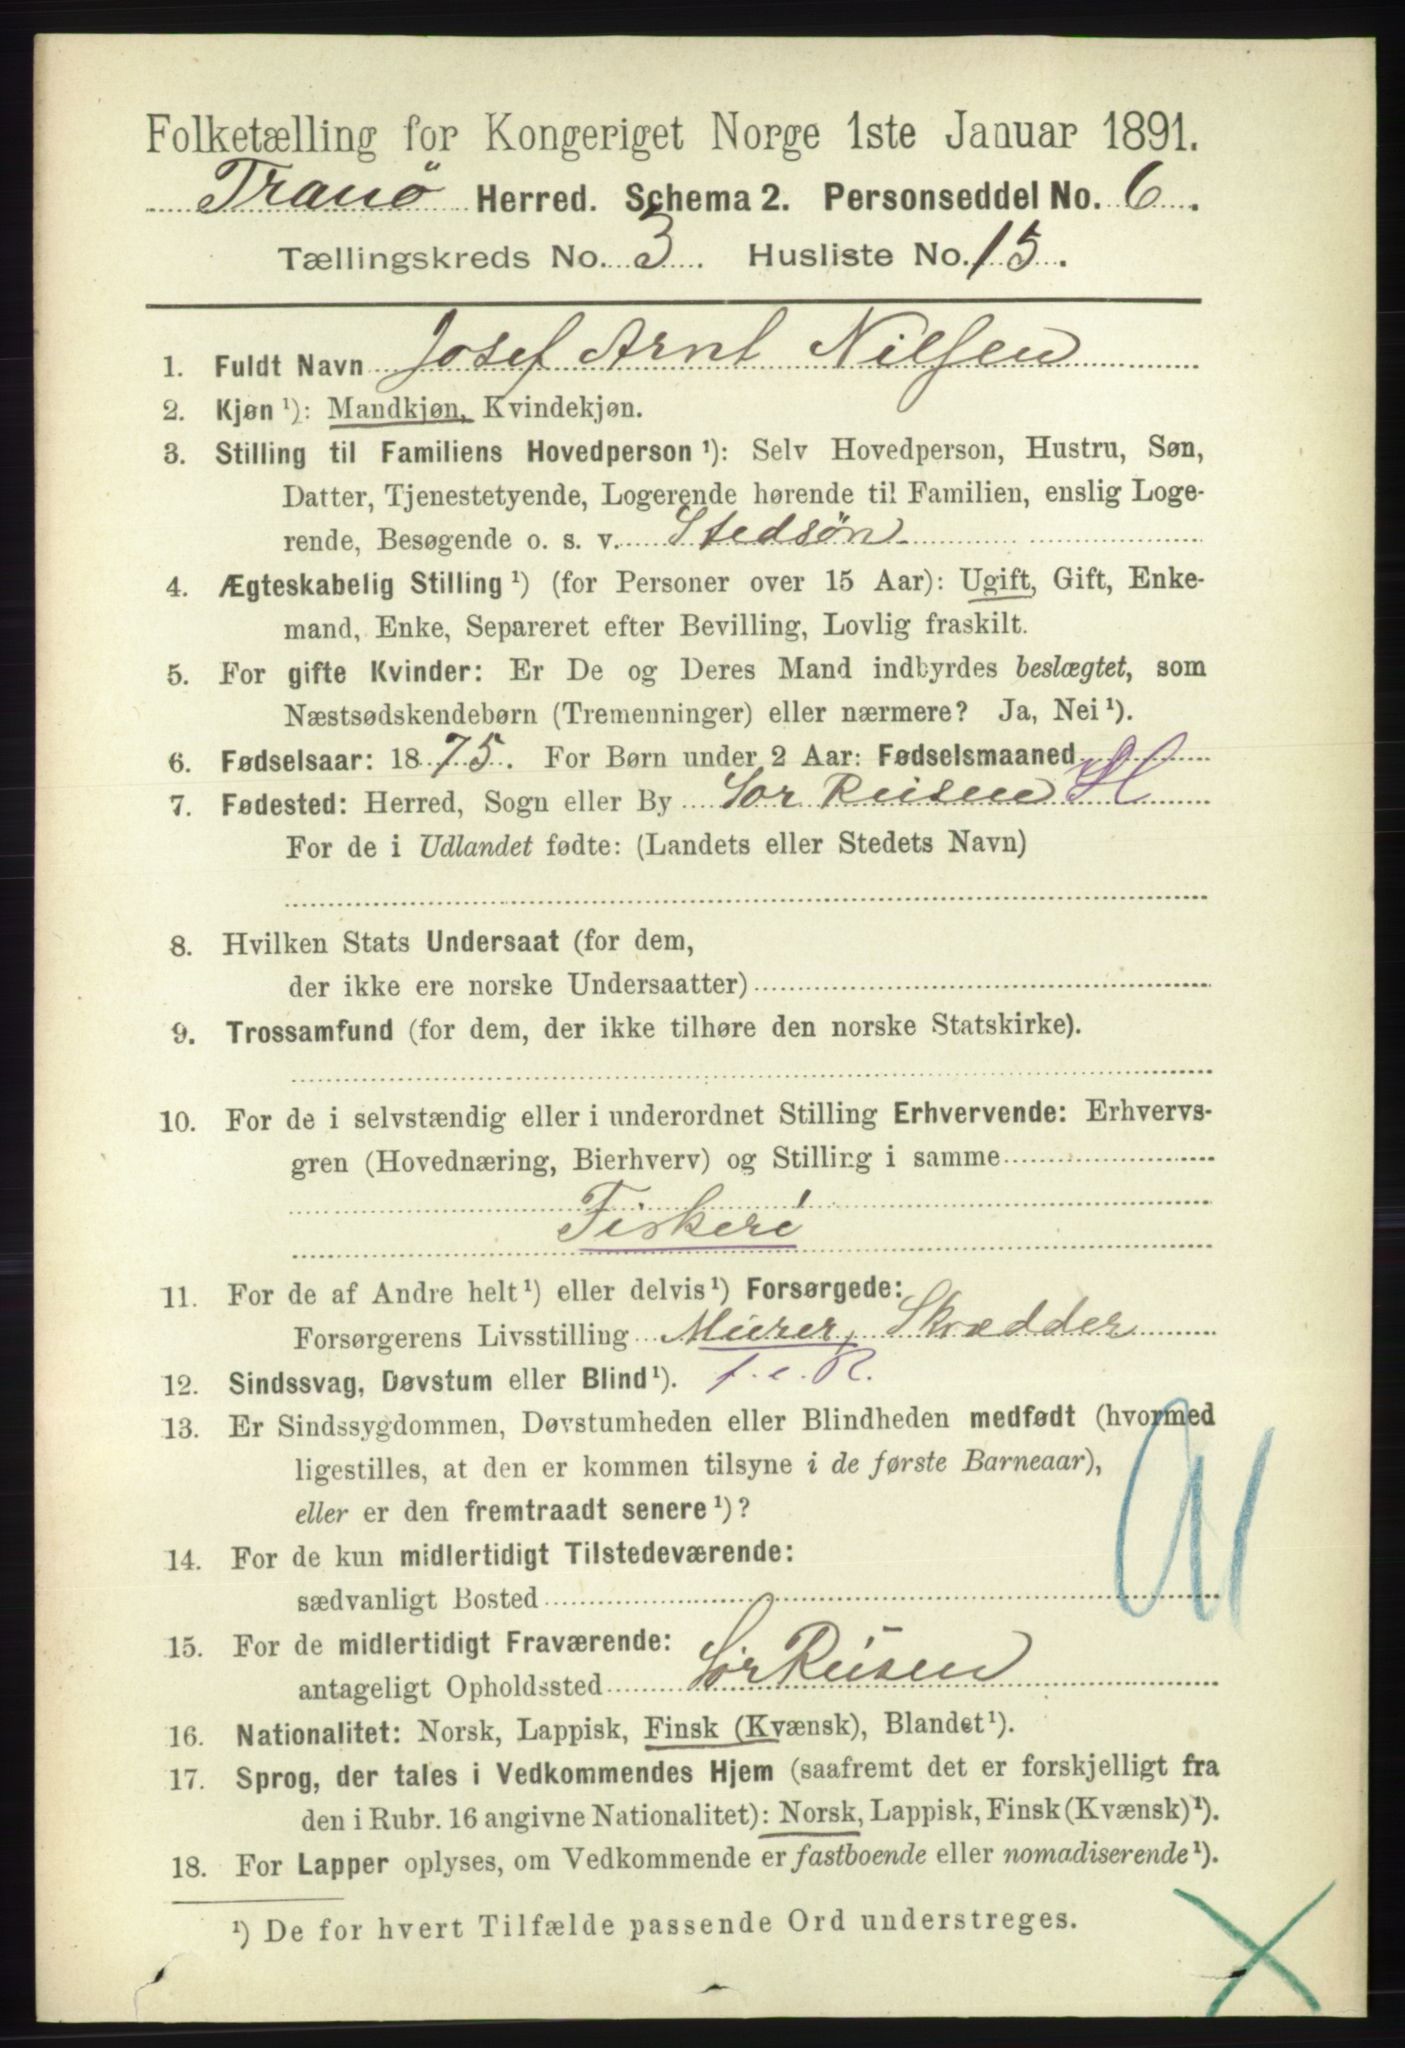 Folketælling for Kongeriget Norge 1ste Januar 1891.
Tranö Herred. Schema 2. Personseddel No. 6.
Tællingskreds No. 3. Husliste No. 15.
1. Fuldt Navn Josef Arnt Nilsen
2. Kjøn ¹): Mandkjøn, Kvindekjøn.
3. Stilling til Familiens Hovedperson ¹): Selv Hovedperson, Hustru, Søn,
Datter, Tjenestetyende, Logerende hørende til Familien, enslig Loge-
rende, Besøgende o. s. v. Stedsön
4. Ægteskabelig Stilling ¹) (for Personer over 15 Aar): Ugift, Gift, Enke-
mand, Enke, Separeret efter Bevilling, Lovlig fraskilt.
5. For gifte Kvinder: Er De og Deres Mand indbyrdes beslægtet, som
Næstsødskendebørn (Tremenninger) eller nærmere? Ja, Nei ¹).
6. Fødselsaar: 1875. For Børn under 2 Aar: Fødselsmaaned
7. Fødested: Herred, Sogn eller By Sor Reisen
For de i Udlandet fødte: (Landets eller Stedets Navn)
8. Hvilken Stats Undersaat (for dem,
der ikke ere norske Undersaatter)
9. Trossamfund (for dem, der ikke tilhøre den norske Statskirke).
10. For de i selvstændig eller i underordnet Stilling Erhvervende: Erhvervs-
gren (Hovednæring, Bierhverv) og Stilling i samme
Fiskeri
11. For de af Andre helt ¹) eller delvis ¹) Forsørgede:
Forsørgerens Livsstilling Murer, Skrædder
12. Sindssvag, Døvstum eller Blind ¹). f. e. R.
13. Er Sindssygdommen, Døvstumheden eller Blindheden medfødt (hvormed
ligestilles, at den er kommen tilsyne i de første Barneaar),
eller er den fremtraadt senere ¹)?
14. For de kun midlertidigt Tilstedeværende:
sædvanligt Bosted
15. For de midlertidigt Fraværende:
antageligt Opholdssted Sor Reisen
16. Nationalitet: Norsk, Lappisk, Finsk (Kvænsk), Blandet ¹).
17. Sprog, der tales i Vedkommendes Hjem (saafremt det er forskjelligt fra
den i Rubr. 16 angivne Nationalitet): Norsk, Lappisk, Finsk (Kvænsk) ¹).
18. For Lapper oplyses, om Vedkommende er fastboende eller nomadiserende ¹).
¹) De for hvert Tilfælde passende Ord understreges.